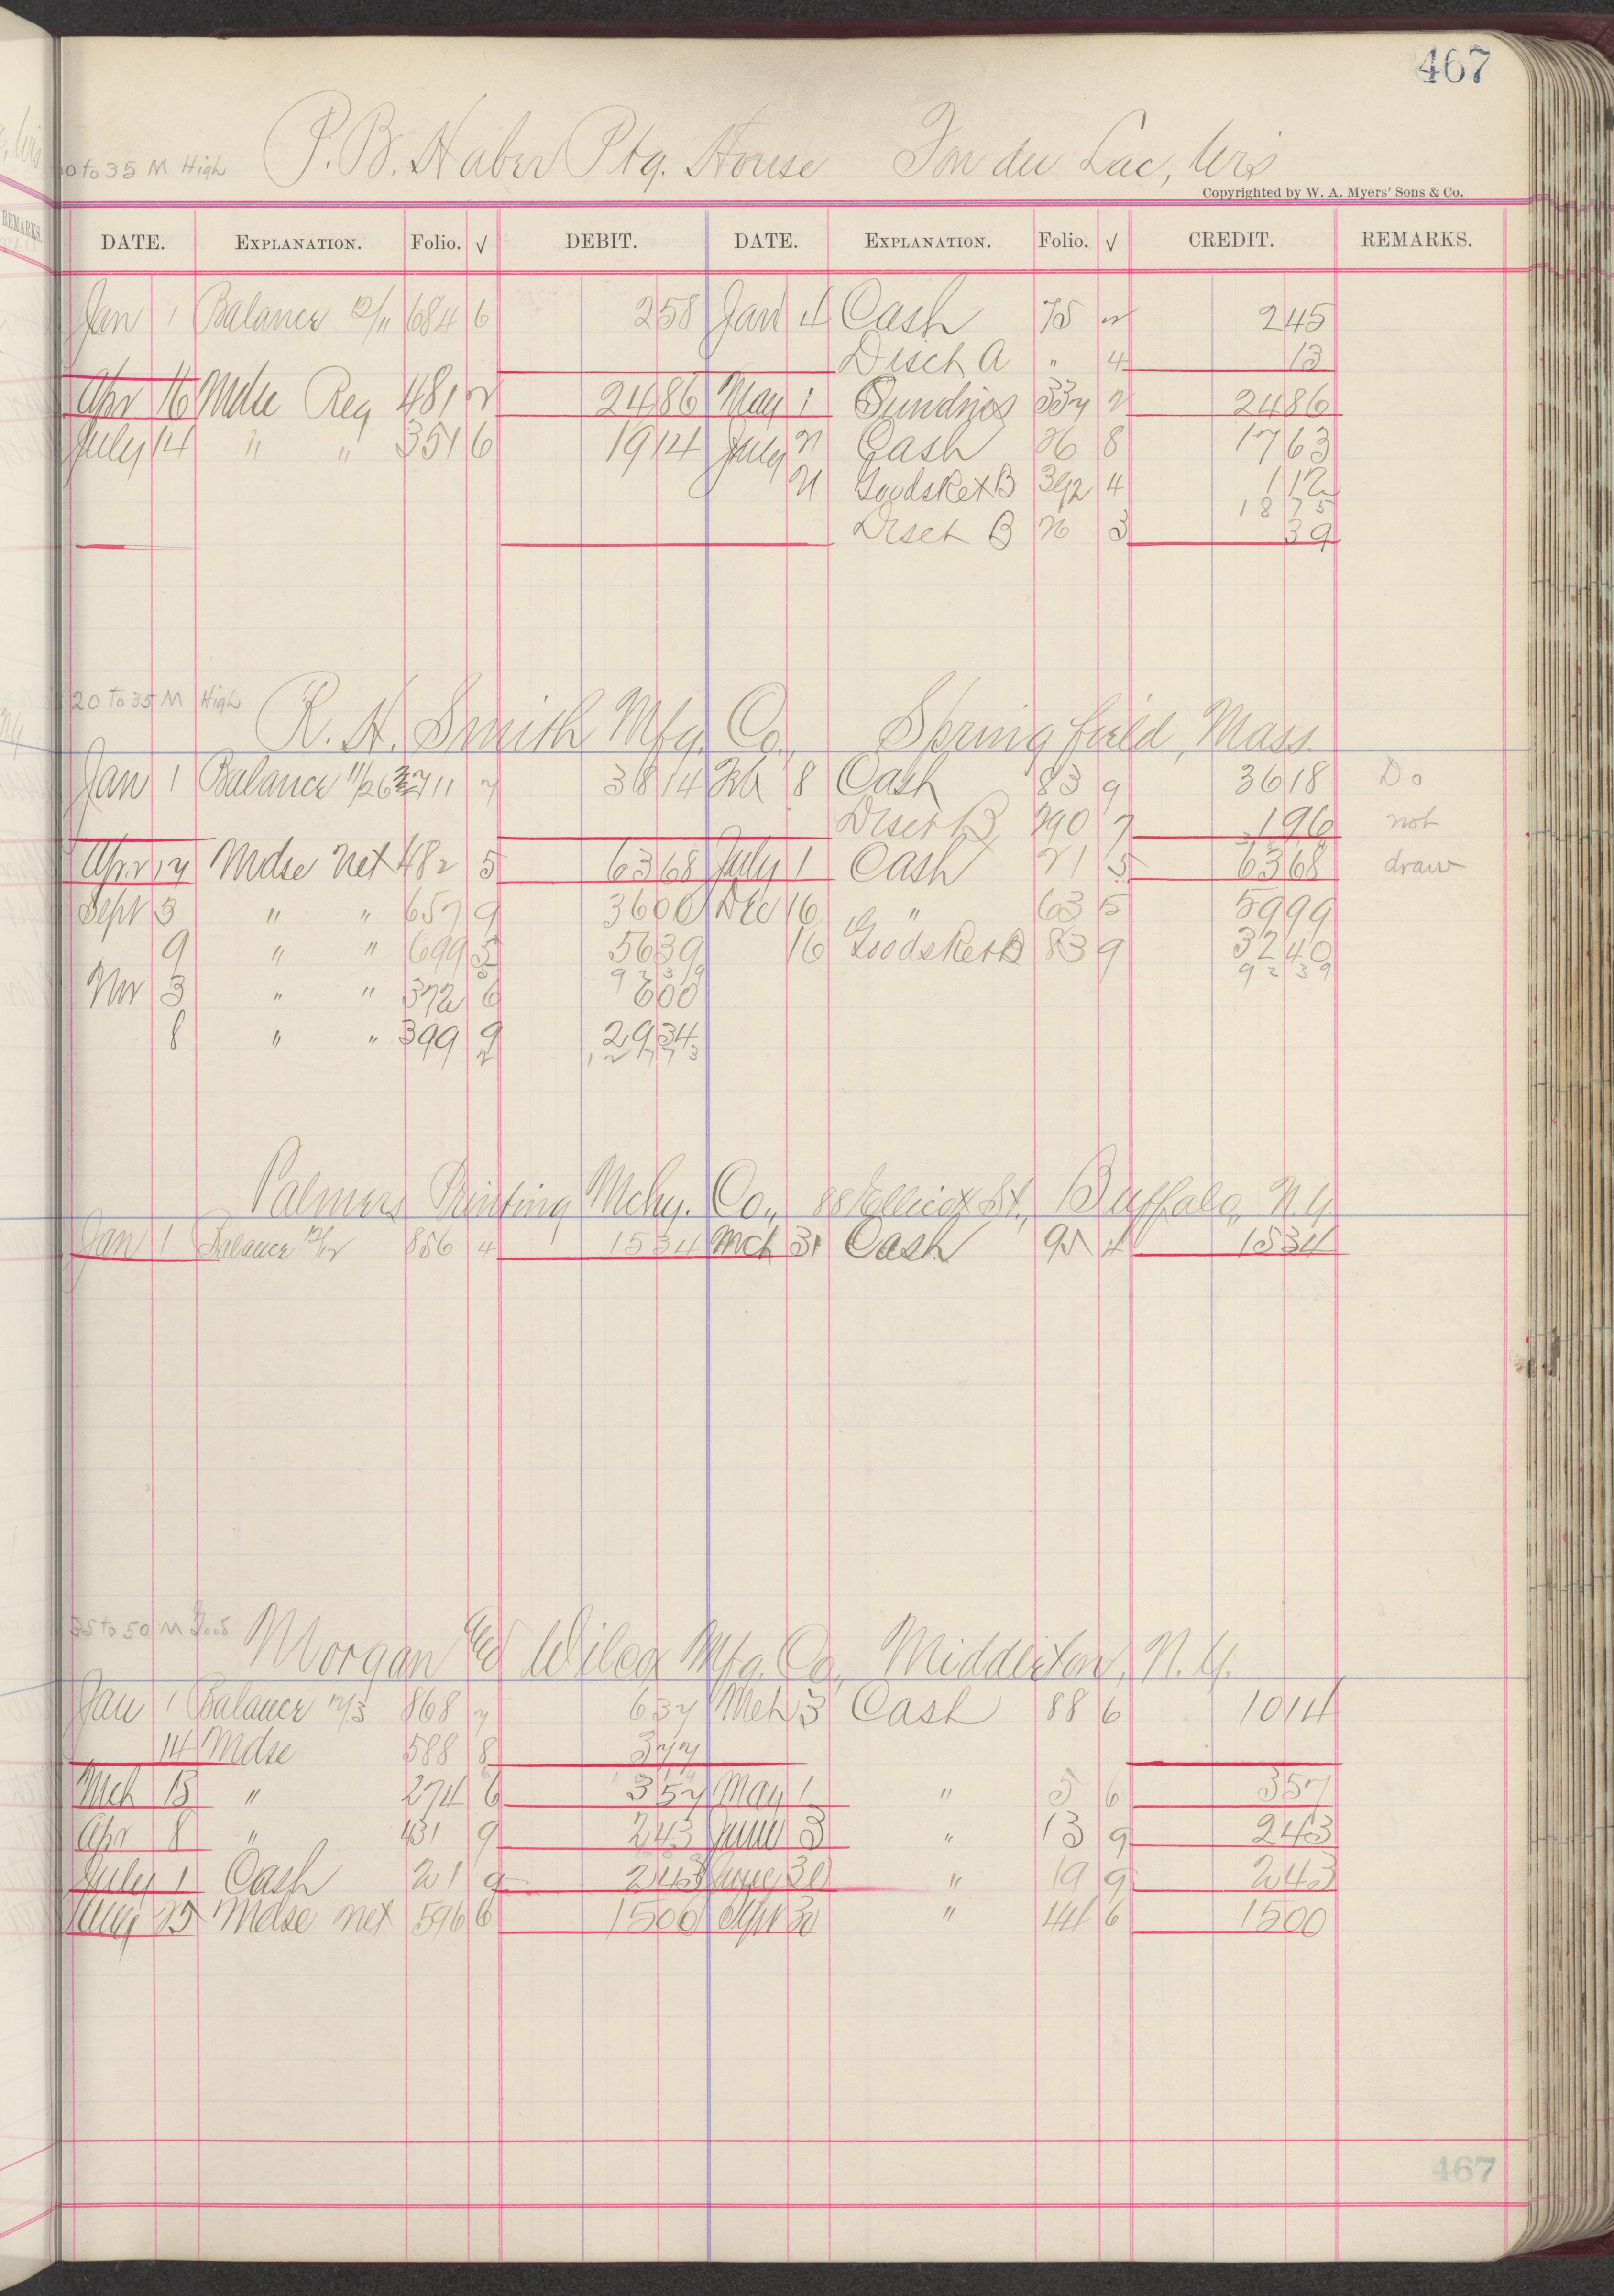 467
20 to 35 M High P. B. Haber Ptg. House Fon du Lac, Wis
Copyrighted by W. A. Myers' Sons & Co.
DATE. EXPLANATION. Folio. √ DEBIT. DATE. EXPLANATION. Folio. √ CREDIT. REMARKS.
Jan 1 Balance 12/11 684 6 258 Jan 4 Cash 75 2 245
Disct A " 4 13
Apr 16 Mdse Reg 481 2 2486 May 1 Sundries 337 2 2486
July 14 " " 351 6 1914 July 21 Cash 26 8 1763
21 Goods Ret B 392 4 112
1875
Disct B 26 3 39
20 to 35 M High R. H. Smith Mfg. Co., Springfield, Mass.
Jan 1 Balance 11/26 711 7 3814 Feb 8 Cash 83 9 3618 Do
Disct B 290 7 196 not
Apr 17 Mdse Net 482 5 6368 July 1 Cash 21 5 6368 draw
Sept 3 " " 657 9 3600 Dec 16 " 63 5 5999
9 " " 699 5 5639 16 Goods Ret B 83 9 3240
9239 9239
Nov 3 " " 372 6 600
8 " " 399 9 2934
12773
Palmers Printing Mchy. Co., 88 Ellicott St., Buffalo, N.Y.
Jan 1 Balance 12/12 856 4 1534 Mch 31 Cash 95 4 1534
35 to 50 M Good Morgan and Wilcox Mfg. Co., Middleton, N.Y.
Jan 1 Balance 12/3 868 7 637 Mch 3 Cash 88 6 1014
14 Mdse 588 8 377
Mch 13 " 274 6 357 May 1 " 5 6 357
Apr 8 " 431 9 243 June 3 " 13 9 243
July 1 Cash 21 9 243 June 30 " 19 9 243
Aug 25 Mdse net 596 6 1500 30 " 44 6 1500
467